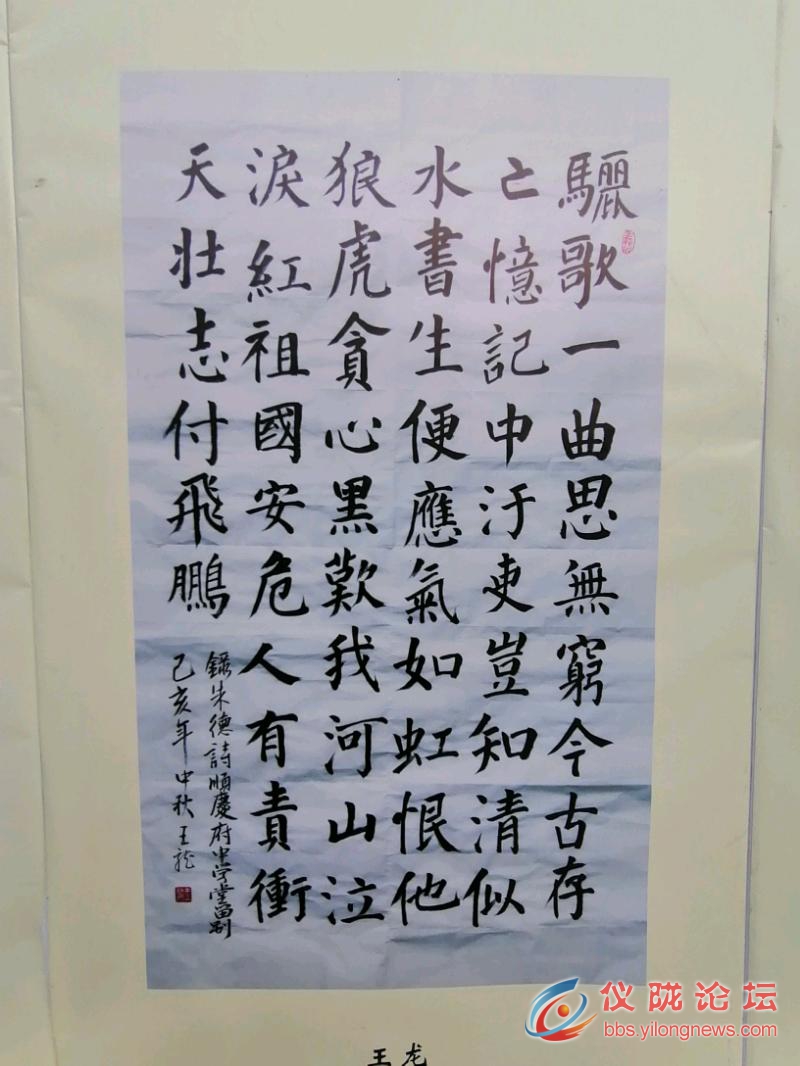 驪歌一曲思無窮今古存
亡憶記中汙吏豈知清似
水書生便應氣如虹恨他
狼虎貪心黑歎我河山泣
淚紅祖國安危人有責衝
天壯志付飛鵬
錄朱德詩順慶府中學堂留别
己亥年中秋王龍
王龙
仪陇论坛
bbs.yilongnews.com